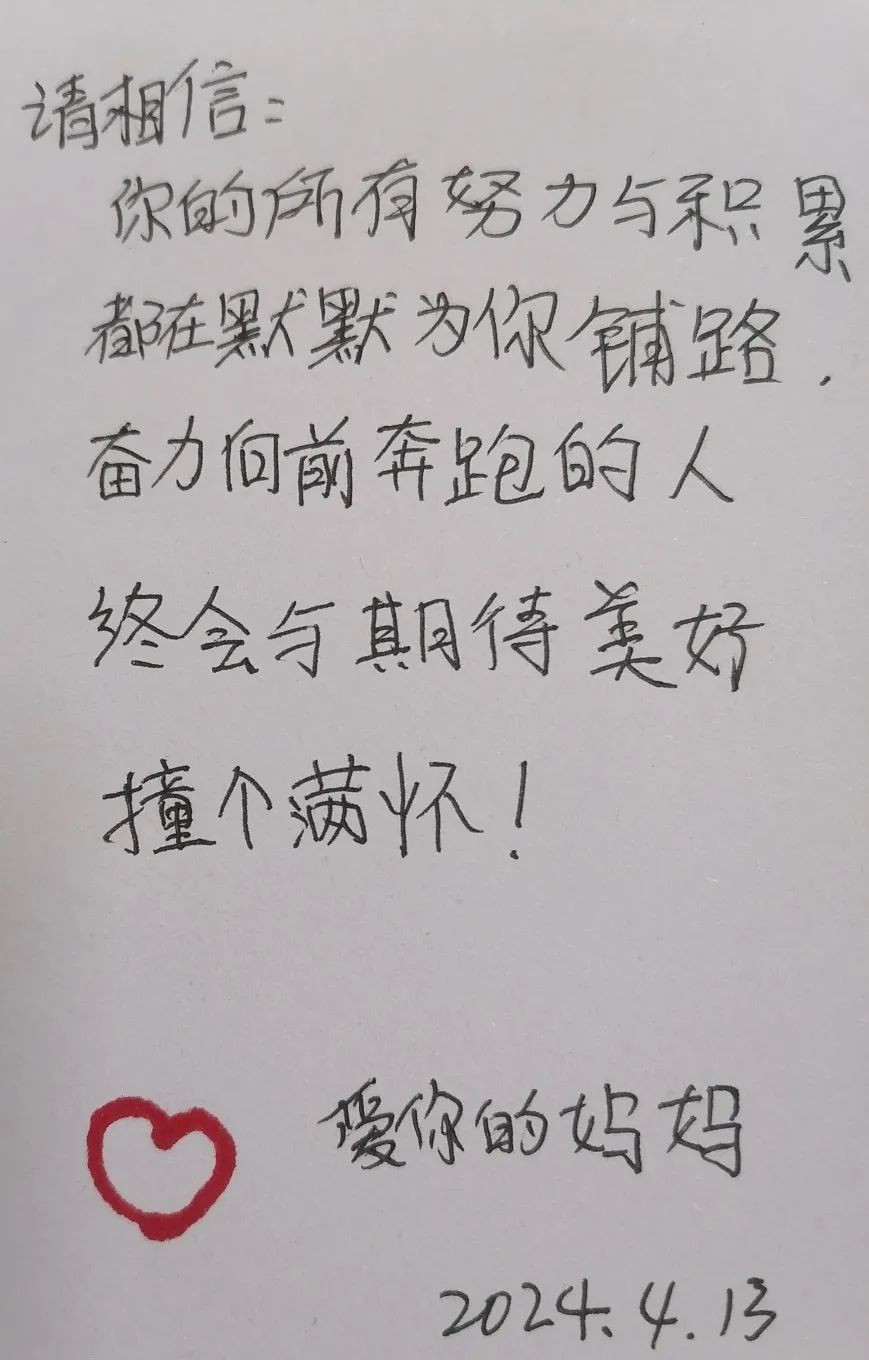 请相信：
你的所有努力与积累
都在默默为你铺路．
奋力向前奔跑的人
终会与期待美好
撞个满怀！
爱你的妈妈
2024.4.13